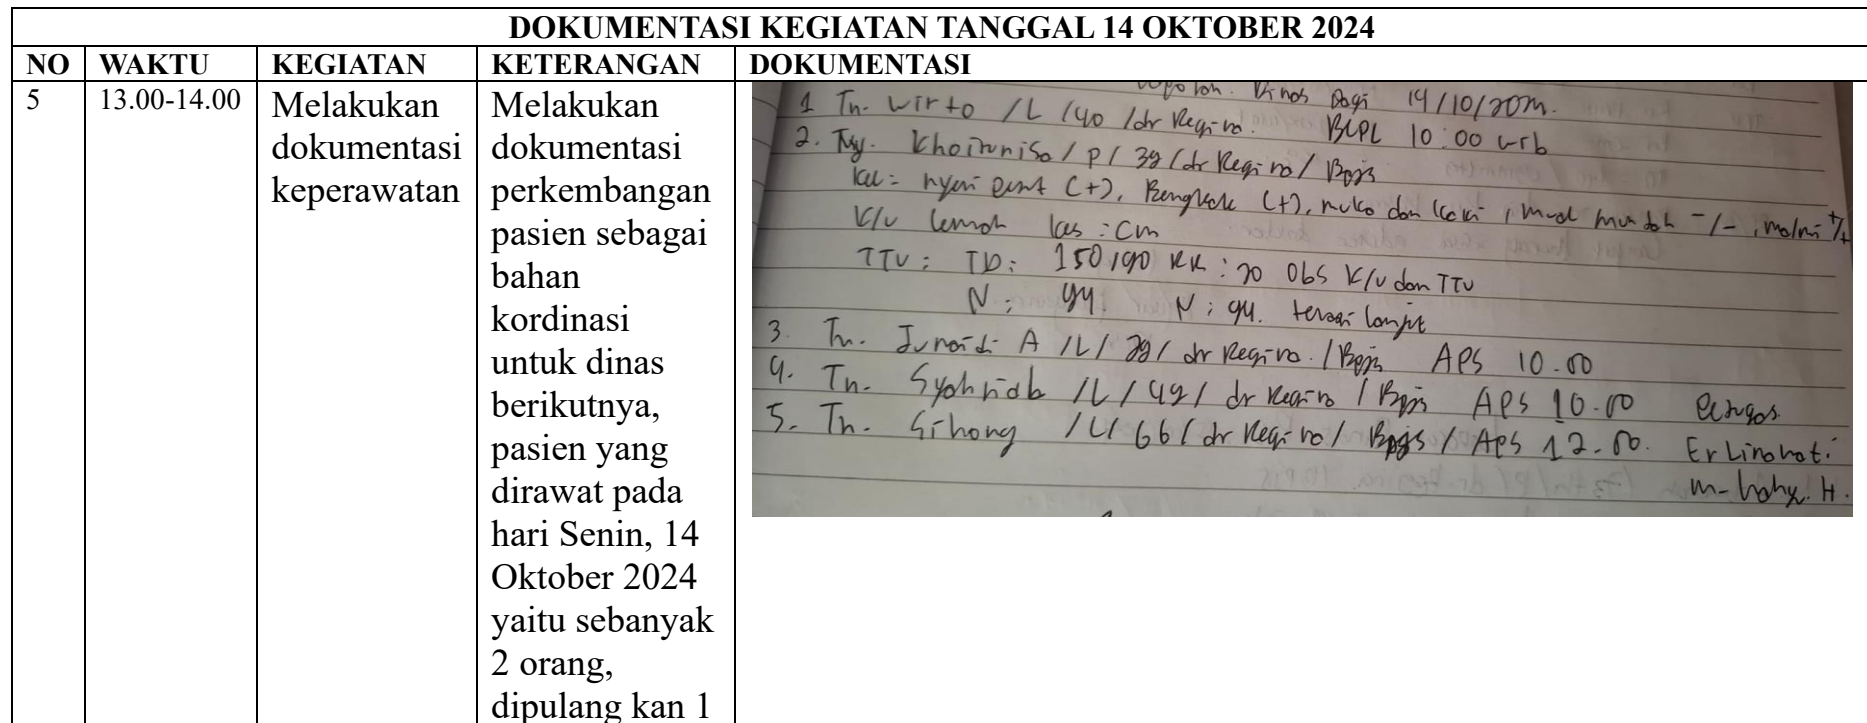 DOKUMENTASI KEGIATAN TANGGAL 14 OKTOBER 2024
NO WAKTU KEGIATAN KETERANGAN DOKUMENTASI
5
13.00-14.00
Melakukan
dokumentasi
keperawatan
Melakukan
dokumentasi
perkembangan
pasien sebagai
bahan
kordinasi
untuk dinas
berikutnya,
pasien yang
dirawat pada
hari Senin, 14
Oktober 2024
yaitu sebanyak
2 orang,
dipulang kan 1
Dinas Pagi 14/10/
1 Tn. Wirto /L /40 /dr Regina. BLPL 10:00 wib
2. Ny. Khoirunisa / P / 39 / dr Regina / Bpjs
kel: nyeri (+), Bengkak (+), muka dan kaki, mual muntah -/-
K/u lemah kes : Cm
TTV : TD: 150/90 RR : 20 Obs K/u dan TTV
N : 94. N : 94. terapi lanjut
3. Tn. Junaidi A /L/ 39/ dr Regina. /Bpjs APS 10.00
4. Tn. /L / 49/ dr Regina / Bpjs APS 10.00 Petugas
5. Tn. Sihong /L/ 66 / dr Regina / Bpjs / APS 12.00. Erlinawati